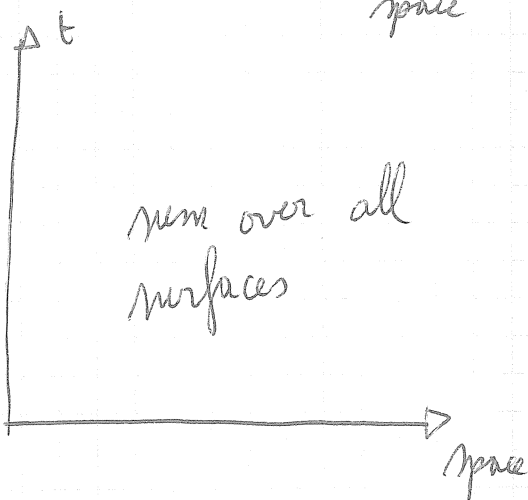 space
t
sum over all
surfaces
space